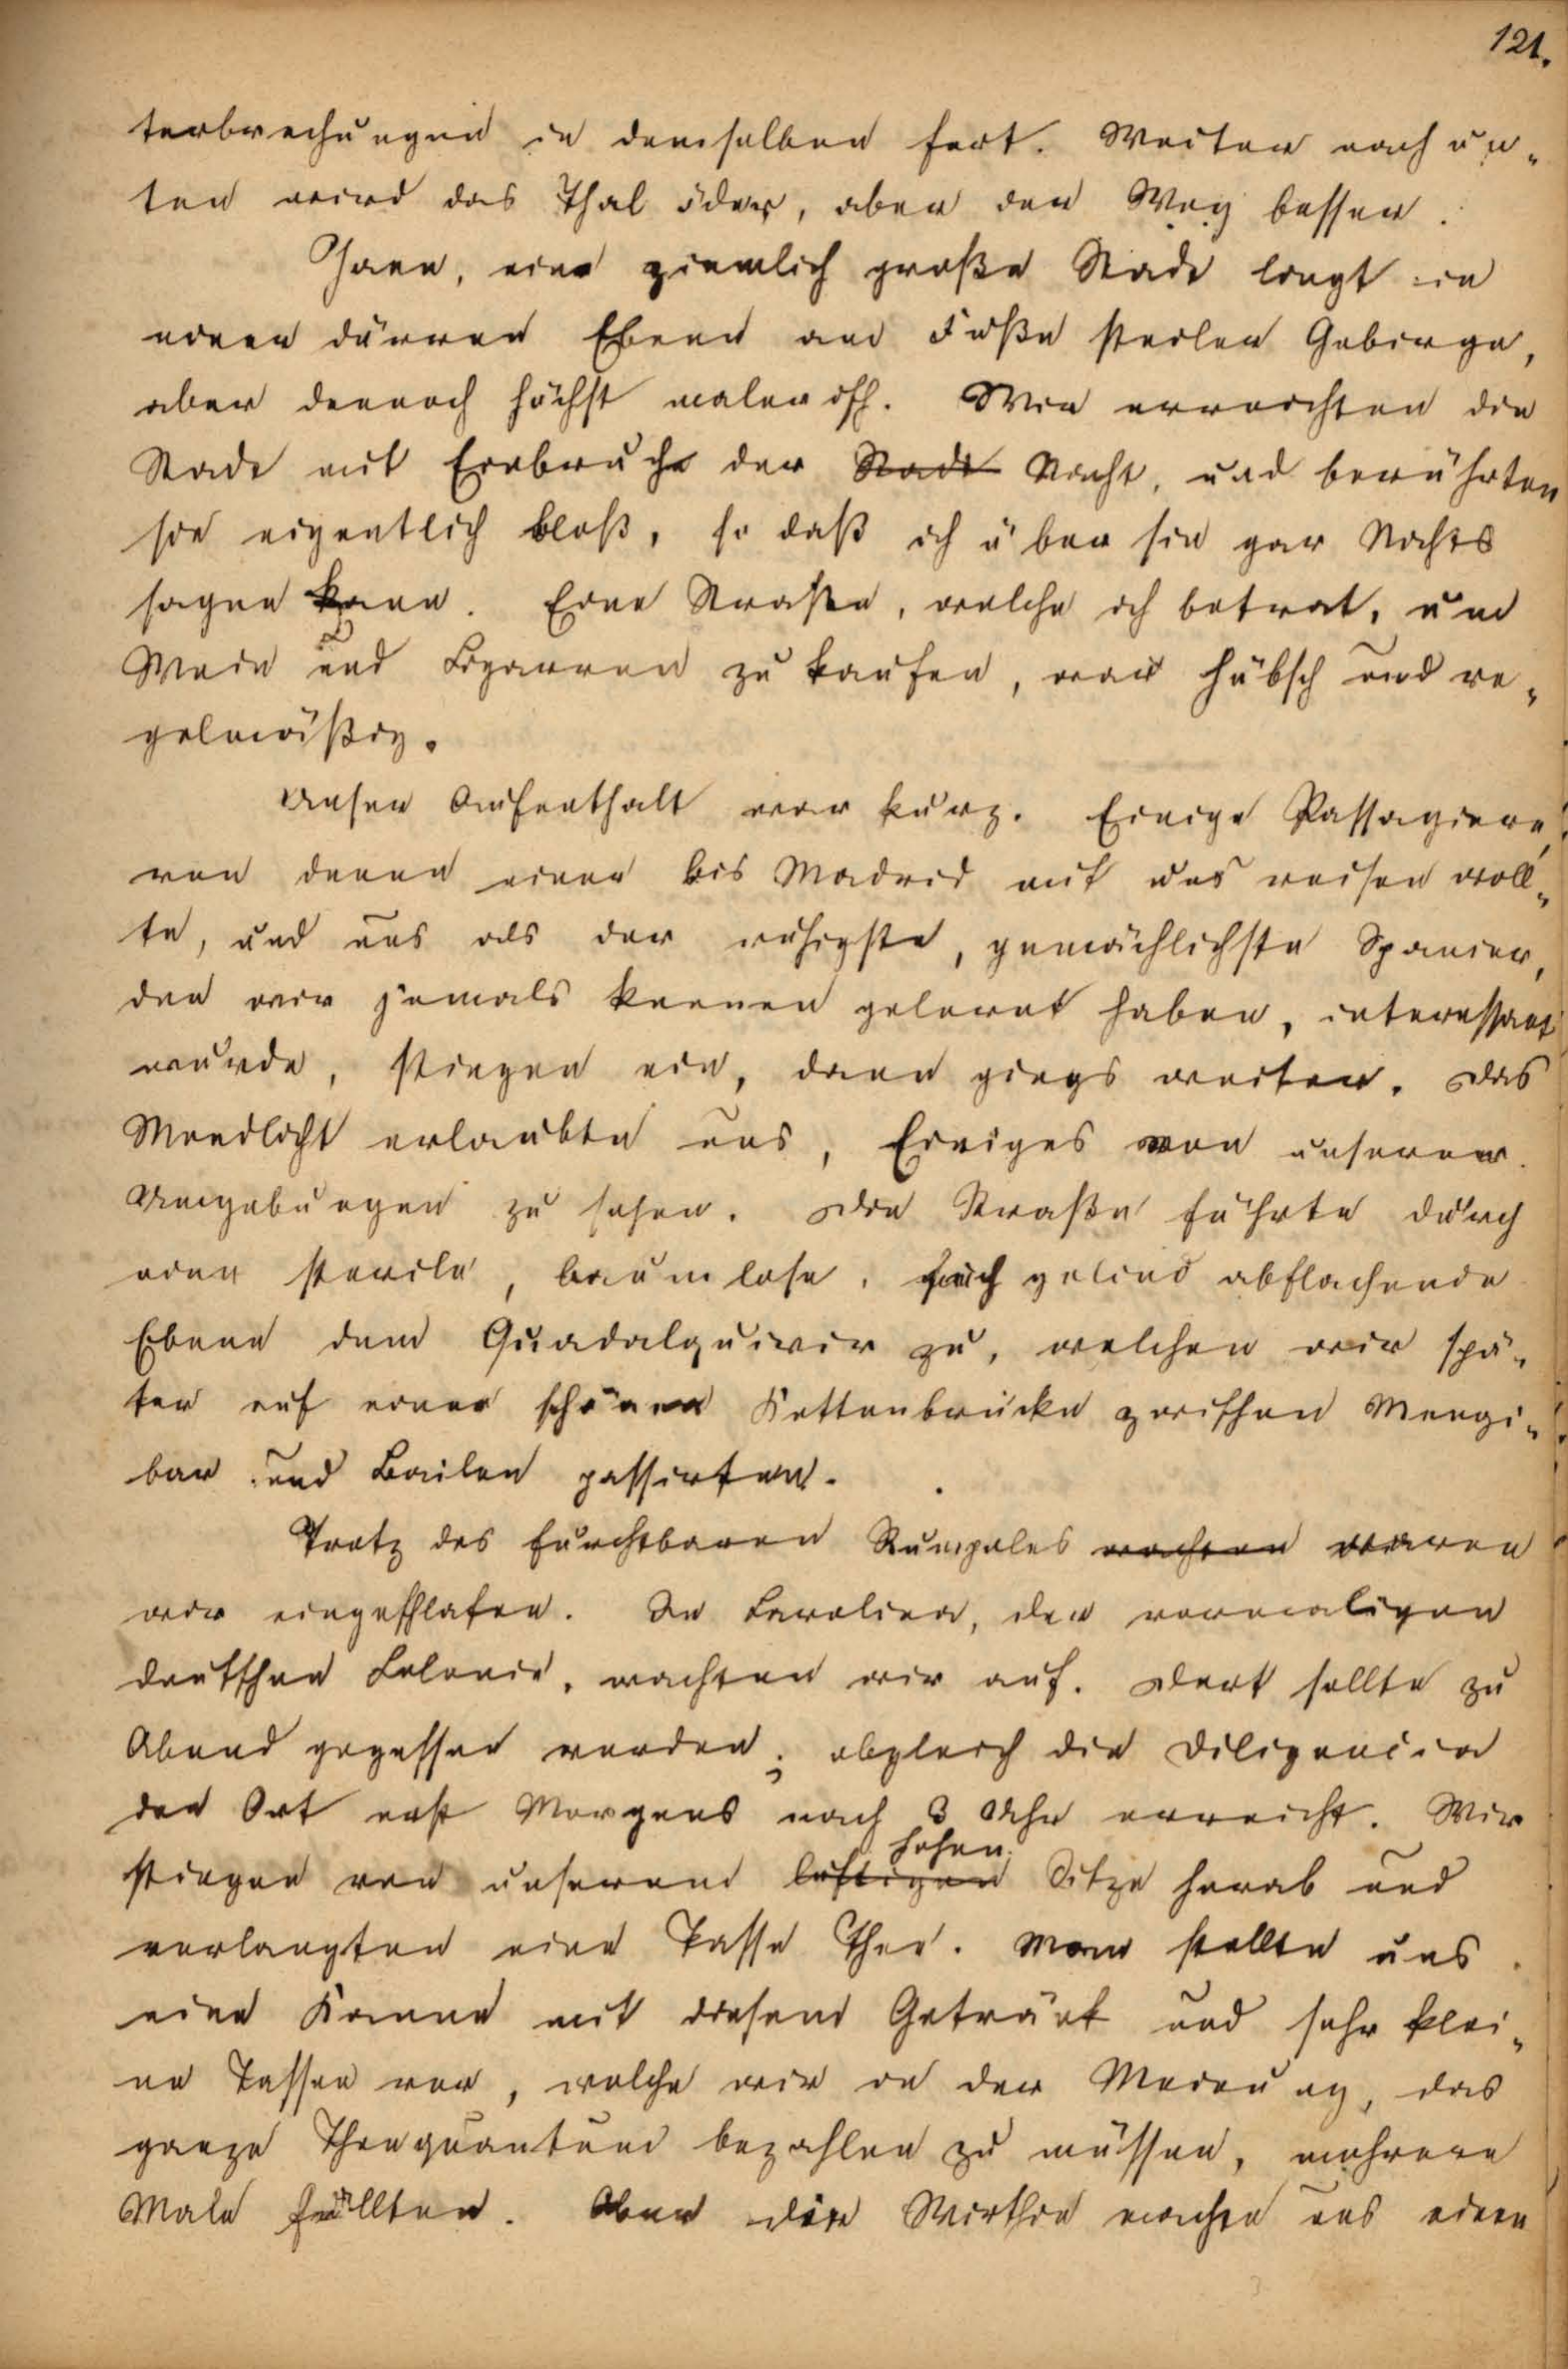 121.
terbrechungen in demselben fort. Weiter nach un-
ten wird das Thal öder, aber der Weg besser.
Jaen, eine ziemlich große Stadt liegt in
einer dürren Ebene am Fuße steiler Gebirge,
aber dennoch höchst malerisch. Wir erreichten die
Stadt mit Einbruche der Stadt Nacht, und berührten
sie eigentlich bloß, so daß ich über sie gar Nichts
sagen kann. Eine Straße, welche ich betrat, um
Wein und Cigarren zu kaufen, war hübsch und re-
gelmäßig.
Unser Aufenthalt war kurz. Einige Passagiere,
von denen einer bis Madrid mit uns reisen woll-
te, und uns als der ruhigste, gemächlichste Spanier,
den wir jemals kennen gelernt haben, interessant
wurde, stiegen ein, dann giengs weiter. Das
Mondlicht erlaubte uns, Einiges von unseren
Umgebungen zu sehen. Die Straße führte durch
eine sterile, baumlose, sich gelind abflachende
Ebene dem Guadalquivir zu, welchen wir spä-
ter auf einer schönen Kettenbrücke zwischen Mengi-
bar und Bailen passirten.
Trotz des furchtbaren Rumpeles wachten waren
wir eingeschlafen. In Carolina, der vormaligen
deutschen Colonie, wachten wir auf. Dort sollte zu
Abend gegessen werden; obgleich die Diligencia
den Ort erst Morgens nach 3 Uhr erreicht. Wir
hohen
stiegen von unserem luftigen Sitze herab und
verlangten eine Tasse Thee. Man stellte uns
eine Kanne mit diesem Getränk und sehr klei-
ne Tassen vor, welche wir in der Meinung, das
ganze Theequantum bezahlen zu müssen, mehrere
Male füllten. Aber die Wirthin machte uns einen